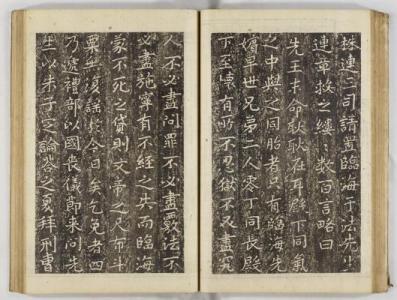 連二司請置臨海于法先生
連章救之縷〻數百言略曰
先王末命耿耿在耳殿下同氣
之中與之同胎者只有臨海先
嬪早世兄弟二人零丁同長殿
下至情有所不忍獄不及盡究
人不必盡問罪不必盡覈法不
必盡施寧有不經之失而臨海
蒙不死之貸則文帝之尺布斗
粟無復謠於今日矣乞免者四
乃遞禮部以國喪儀節來問先
生以朱子定論答之夏拜刑曹